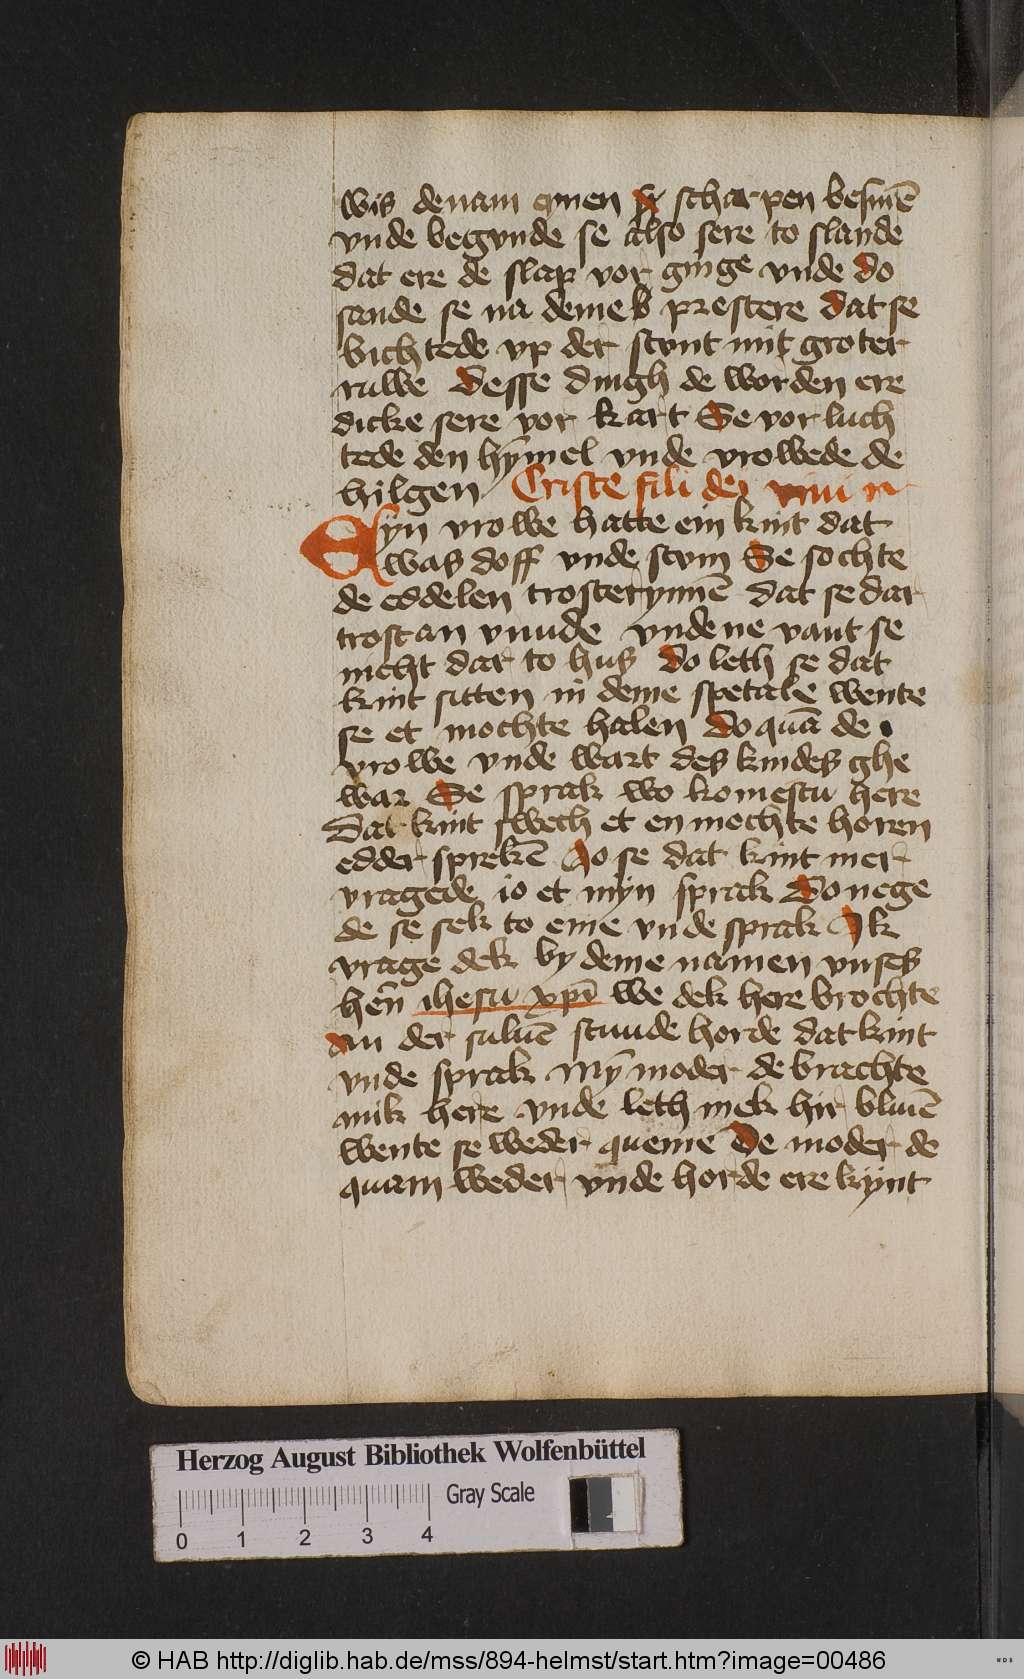 wis de nam eynen scharpen besmē
vnde begvnde se also sere to slande
dat ere de slap vor ginge vnde do
sande se na deme prestere dat se
bichtede vp der stvnt mit groter
ruwe Desse dingh de worden ere
dicke sere vor kart Se vor luch
tede den hymel vnde vrowede de
hilgen Criste fili dei viui
Eyn vrowe hatte ein kint dat
was doff vnde stvm Se sochte
de eddelen trosterynnē dat se dar
trost an vunde vnde ne vant se
nicht dar to hus do leth se dat
kint sitten in deme spetale wente
se et mochte halen do quā de
vrowe vnde wart des kindes ghe
war Se sprak wo komestu here
Dat kint swech et en mochte horen
edder sprekē Jo se dat kint mer
vragede io et myn sprak Do nege
de se sek to eme vnde sprak Jk
vrage dek by deme namen vnses
hern ihesu xpī we dek here brochte
an der suluē stunde horde dat kint
vnde sprak my moder de brachte
mik here vnde leth mek hir bliuē
wente se weder queme De moder de
quam weder vnde horde ere kynt
Herzog August Bibliothek Wolfenbüttel
Gray Scale
0 1 2 3 4
© HAB http://diglib.hab.de/mss/894-helmst/start.htm?image=00486